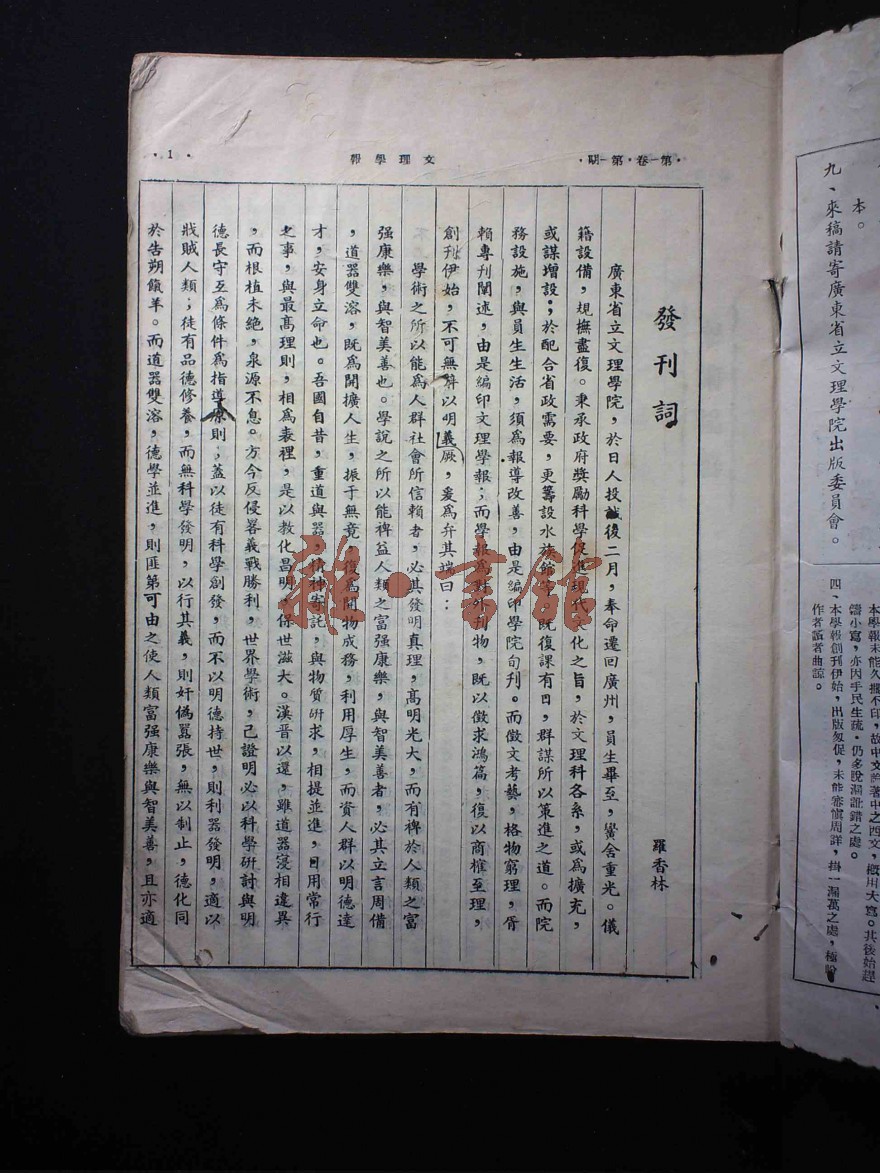 本。
九、來稿請寄廣東省立文理學院出版委員會。
本學報未能久擱不印，故中文許著中之西文，概用大寫。其後始趕
鑄小寫，亦因手民生疏，仍多脫漏訛錯之處。
四、本學報創刊伊始，出版匆促，未能審愼周詳，掛一漏萬之處，極盼
作者讀者曲諒。
·第一卷·第一期·
文理學報
·1·
發刊詞
羅香林
廣東省立文理學院，於日人投誠後二月，奉命遷回廣州，員生畢至，黌舍重光。儀
籍設備，規撫盡復。秉承政府奬勵科學促進現代文化之旨，於文理科各系，或爲擴充，
或謀增設；於配合省政需要，更籌設水族館等。旣復課有日，群謀所以策進之道。而院
務設施，與員生生活，須爲報導改善，由是編印學院旬刋。而徵文考藝，格物窮理，胥
賴專刊闡述，由是編印文理學報；而學報爲對外刋物，旣以徵求鴻篇，復以商榷至理，
創刊伊始，不可無辭以明義厥，爰爲弁其端曰：
學術之所以能爲人群社會所信賴者，必其發明真理，高明光大，而有裨於人類之富
强康樂，與智美善也。學說之所以能裨益人類之富强康樂，與智美善者，必其立言周備
，道器雙溶，旣爲開擴人生，振于無竟，復爲開物成務，利用厚生，而資人群以明德達
才，安身立命也。吾國自昔，重道與器，精神寄託，與物質研求，相提並進，日用常行
之事，與最高理則，相爲表裡，是以教化昌明，保世滋大。漢晋以還，雖道器寖相違異
，而根植未絶，泉源不息。方今反侵畧義戰勝利，世界學術，已證明必以科學研討與明
德長守互爲條件爲指導原則；蓋以徒有科學創發，而不以明德持世，則利器發明，適以
戕賊人類；徒有品德修養，而無科學發明，以行其義，則奸僞囂張，無以制止，德化同
於告朔餼羊。而道器雙溶，德學並進，則匪第可由之使人類富强康樂與智美善，且亦適
雜·書館